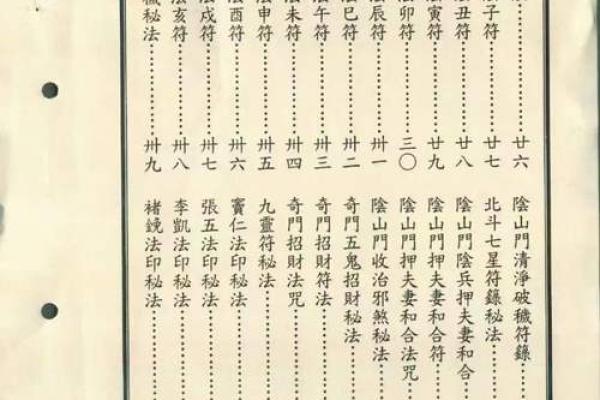 廿六
陰子符……廿七
陰丑符……廿八
陰寅符……廿九
陰卯符……三〇
陰辰符……卅一
陰巳符……卅二
陰午符……卅三
陰未符……卅四
陰申符……卅五
陰酉符……卅六
陰戌符……卅七
陰亥符……卅八
穢秘法……卅九
陰山門清淨破穢符籙……
北斗七星符籙秘法……
陰山門陰兵押夫妻和合
陰山門押夫妻和合符……
陰山門押夫妻和合法咒…
陰山門收治邪煞秘法……
奇門五鬼招財秘法……
奇門招財符法……
奇門招財法咒……
九靈符秘法……
竇仁法印秘法……
張五法印秘法……
李凱法印秘法……
褚法印秘法……